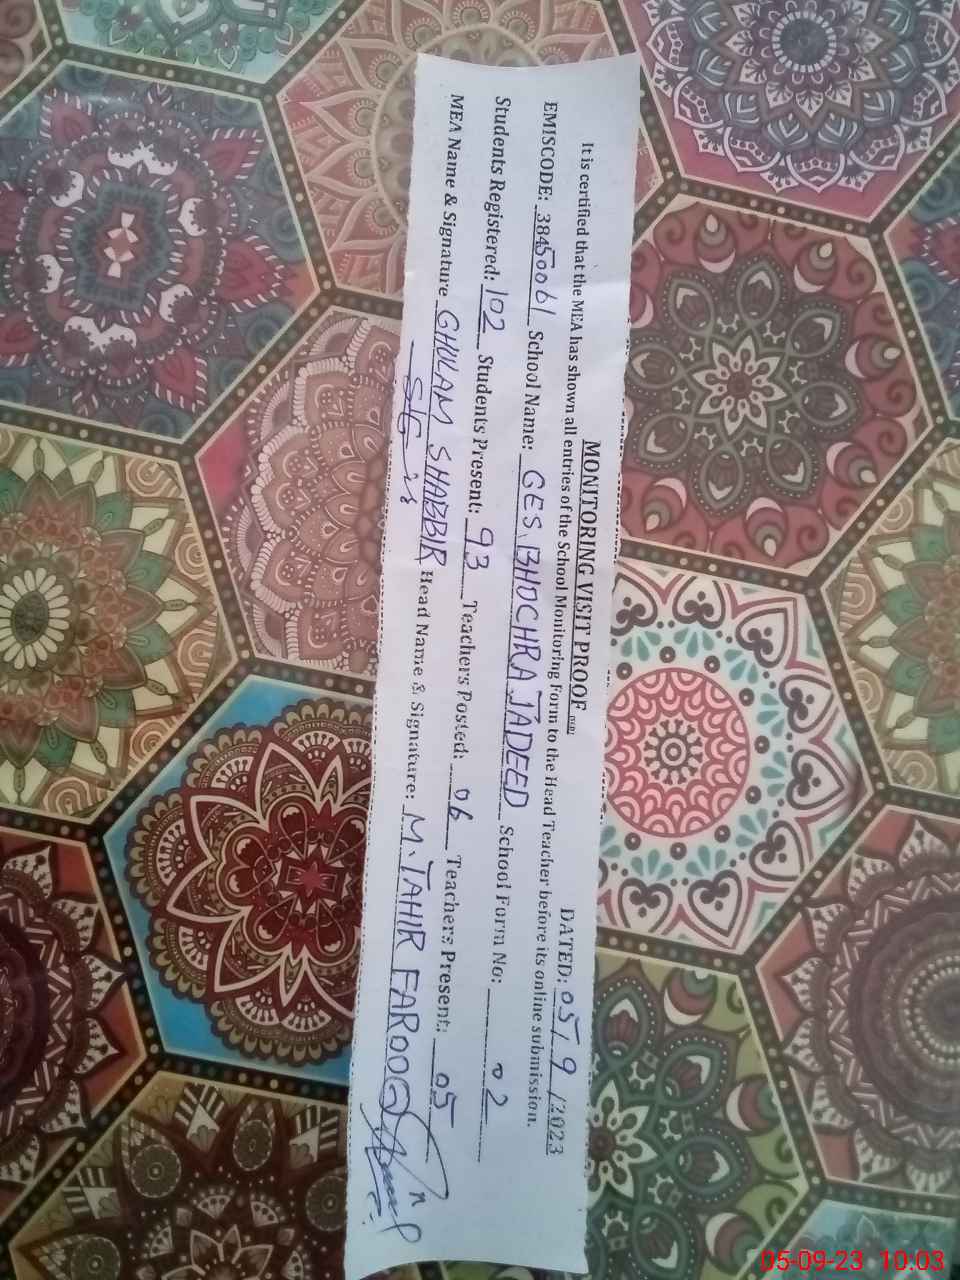 MONITORING VISIT PROOF
DATED: 05/9/2023
It is certified that the MEA has shown all entries of the School Monitoring Form to the Head Teacher before its online submission.
EMISCODE: 3845006 School Name: GES BHOCHRA JADEED School Form No: 02
Students Registered: 102 Students Present: 93 Teachers Posted: 06 Teachers Present: 05
MEA Name & Signature GHULAM SHABBIR Head Name & Signature: M. TAHIR FAROOQ
05-09-23 10:03